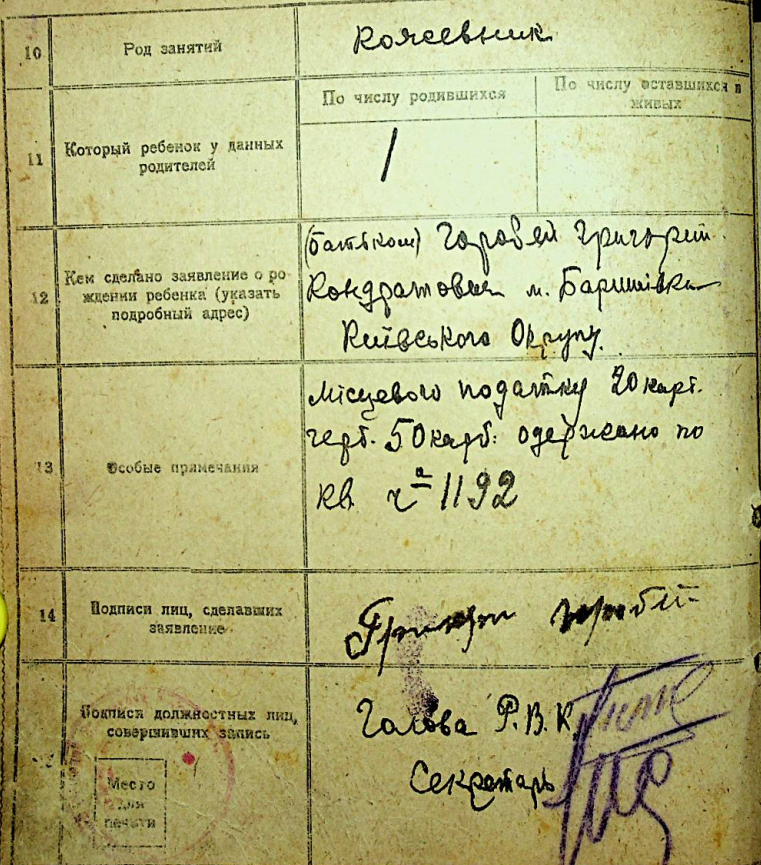 10
Род занятий
Кожсевник
По числу родившихся
По числу оставшихся в
живых
11
Который ребенок у данных
родителей
1
12
Кем сделано заявление о ро
ждении ребенка (указать
подробный адрес)
(батьком) Горобей Григорий
Кондратович м. Баришівка
Київського Округу.
13
Особые примечания
Місцевого податку 20 карб.
герб. 50 карб. одержано по
кв. ч 1192
14
Подписи лиц, сделавших
заявление
Подписи должностных лиц,
совершивших запись
Голова Р.В.К.
Секретарь
Место
для
печати